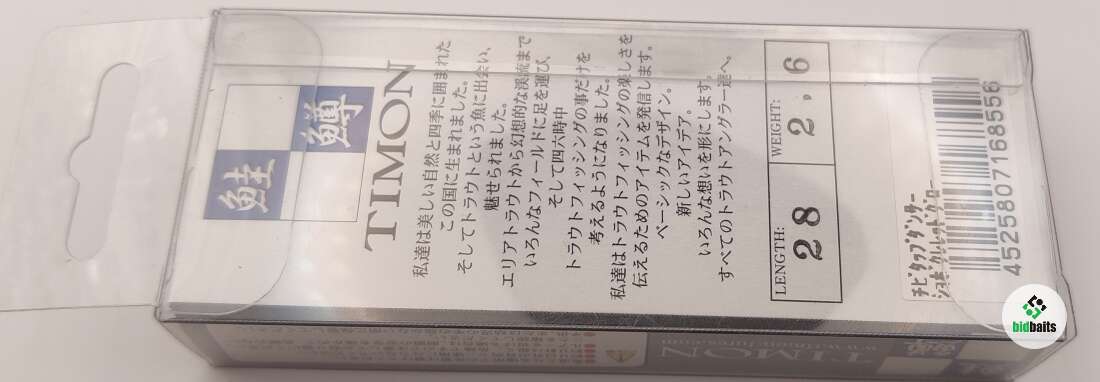 鮭 鱒
TIMON
私達は美しい自然と四季に囲まれた
この国に生まれました。
そしてトラウトという魚に出会い、
魅せられました。
エリアトラウトから幻想的な渓流まで
いろんなフィールドに足を運び、
そして四六時中
トラウトフィッシングの事だけを
考えるようになりました。
私達はトラウトフィッシングの楽しさを
伝えるためのアイテムを発信します。
ベーシックなデザイン。
新しいアイデア。
いろんな想いを形にします。
すべてのトラウトアングラー達へ、
LENGTH: 28
WEIGHT: 2.6
チビタップダンサー
ショボクレレッドグロー
4525807168556
TIMON
bidbaits